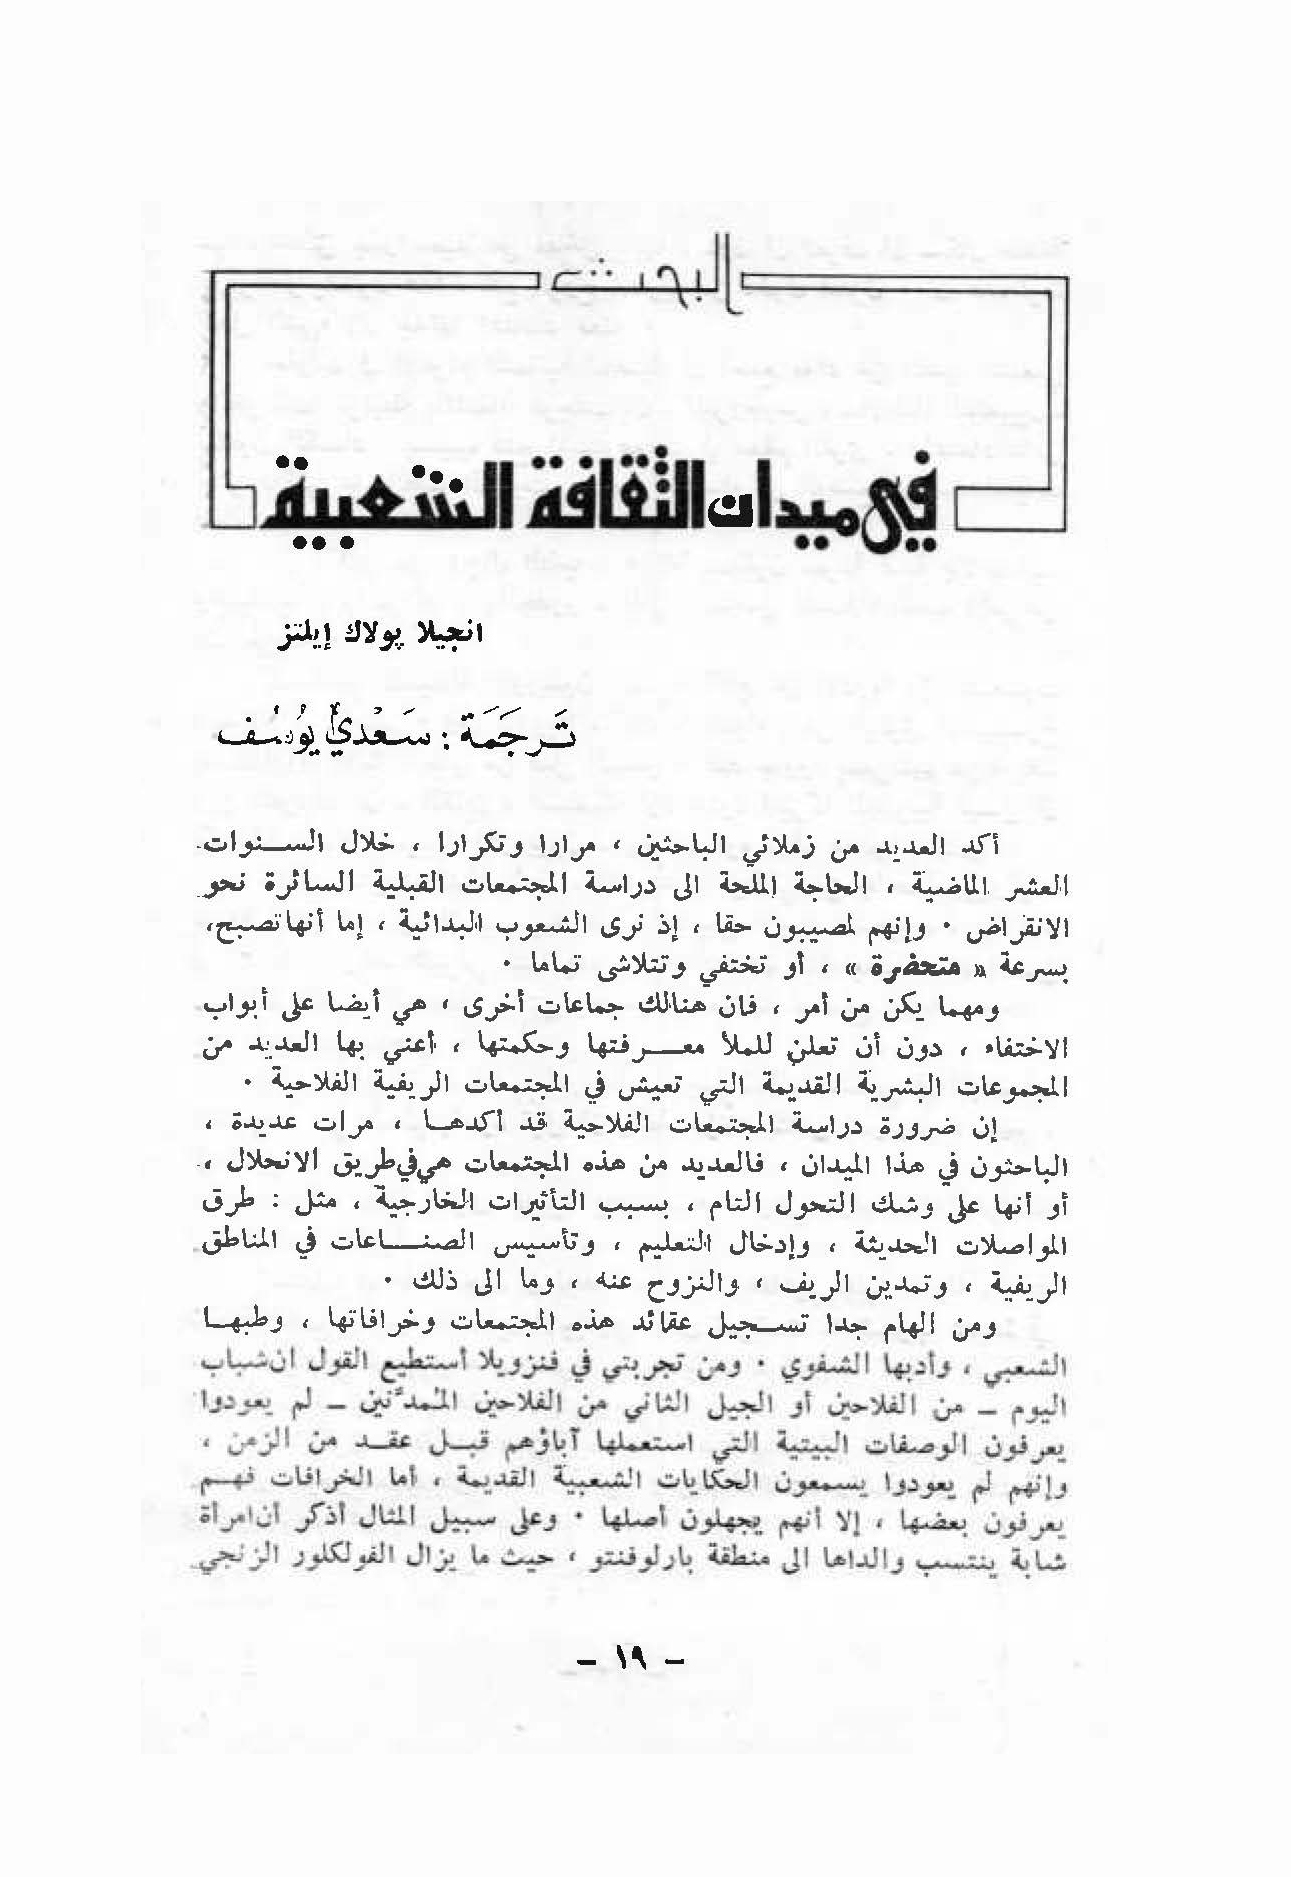 البحث
في ميدان الثقافة الشعبية
انجيلا پولاك إيلتز
تَرجَمَة : سَعْدي يُوسُف
أكد العديد من زملائي الباحثين ، مرارا وتكرارا ، خلال الســنوات
العشر الماضية ، الحاجة الملحة الى دراسة المجتمعات القبلية السائرة نحو
الانقراض . وإنهم لمصيبون حقا ، إذ نرى الشعوب البدائية ، إما أنها تصبح،
بسرعة « متحضرة » ، أو تختفي وتتلاشى تماما .
ومهما يكن من أمر ، فان هنالك جماعات أخرى ، هي أيضا على أبواب
الاختفاء ، دون أن تعلن للملأ معــرفتها وحكمتها ، أعني بها العديد من
المجموعات البشرية القديمة التي تعيش في المجتمعات الريفية الفلاحية .
إن ضرورة دراسة المجتمعات الفلاحية قد أكدهــا ، مرات عديدة ،
الباحثون في هذا الميدان ، فالعديد من هذه المجتمعات هي في طريق الانحلال ،
أو أنها على وشك التحول التام ، بسبب التأثيرات الخارجية ، مثل : طرق
المواصلات الحديثة ، وإدخال التعليم ، وتأسيس الصنــاعات في المناطق
الريفية ، وتمدين الريف ، والنزوح عنه ، وما الى ذلك .
ومن الهام جدا تســجيل عقائد هذه المجتمعات وخرافاتها ، وطبهــا
الشعبي ، وأدبها الشفوي . ومن تجربتي في فنزويلا أستطيع القول ان شباب
اليوم ــ من الفلاحين أو الجيل الثاني من الفلاحين المُمدَّنين ــ لم يعودوا
يعرفون الوصفات البيتية التي استعملها آباؤهم قبــل عقــد من الزمن ،
وإنهم لم يعودوا يسمعون الحكايات الشعبية القديمة ، أما الخرافات فهــم
يعرفون بعضها ، إلا أنهم يجهلون أصلها . وعلى سبيل المثال أذكر أن امرأة
شابة ينتسب والداها الى منطقة بارلوفنتو ، حيث ما يزال الفولكلور الزنجي
– ١٩ –